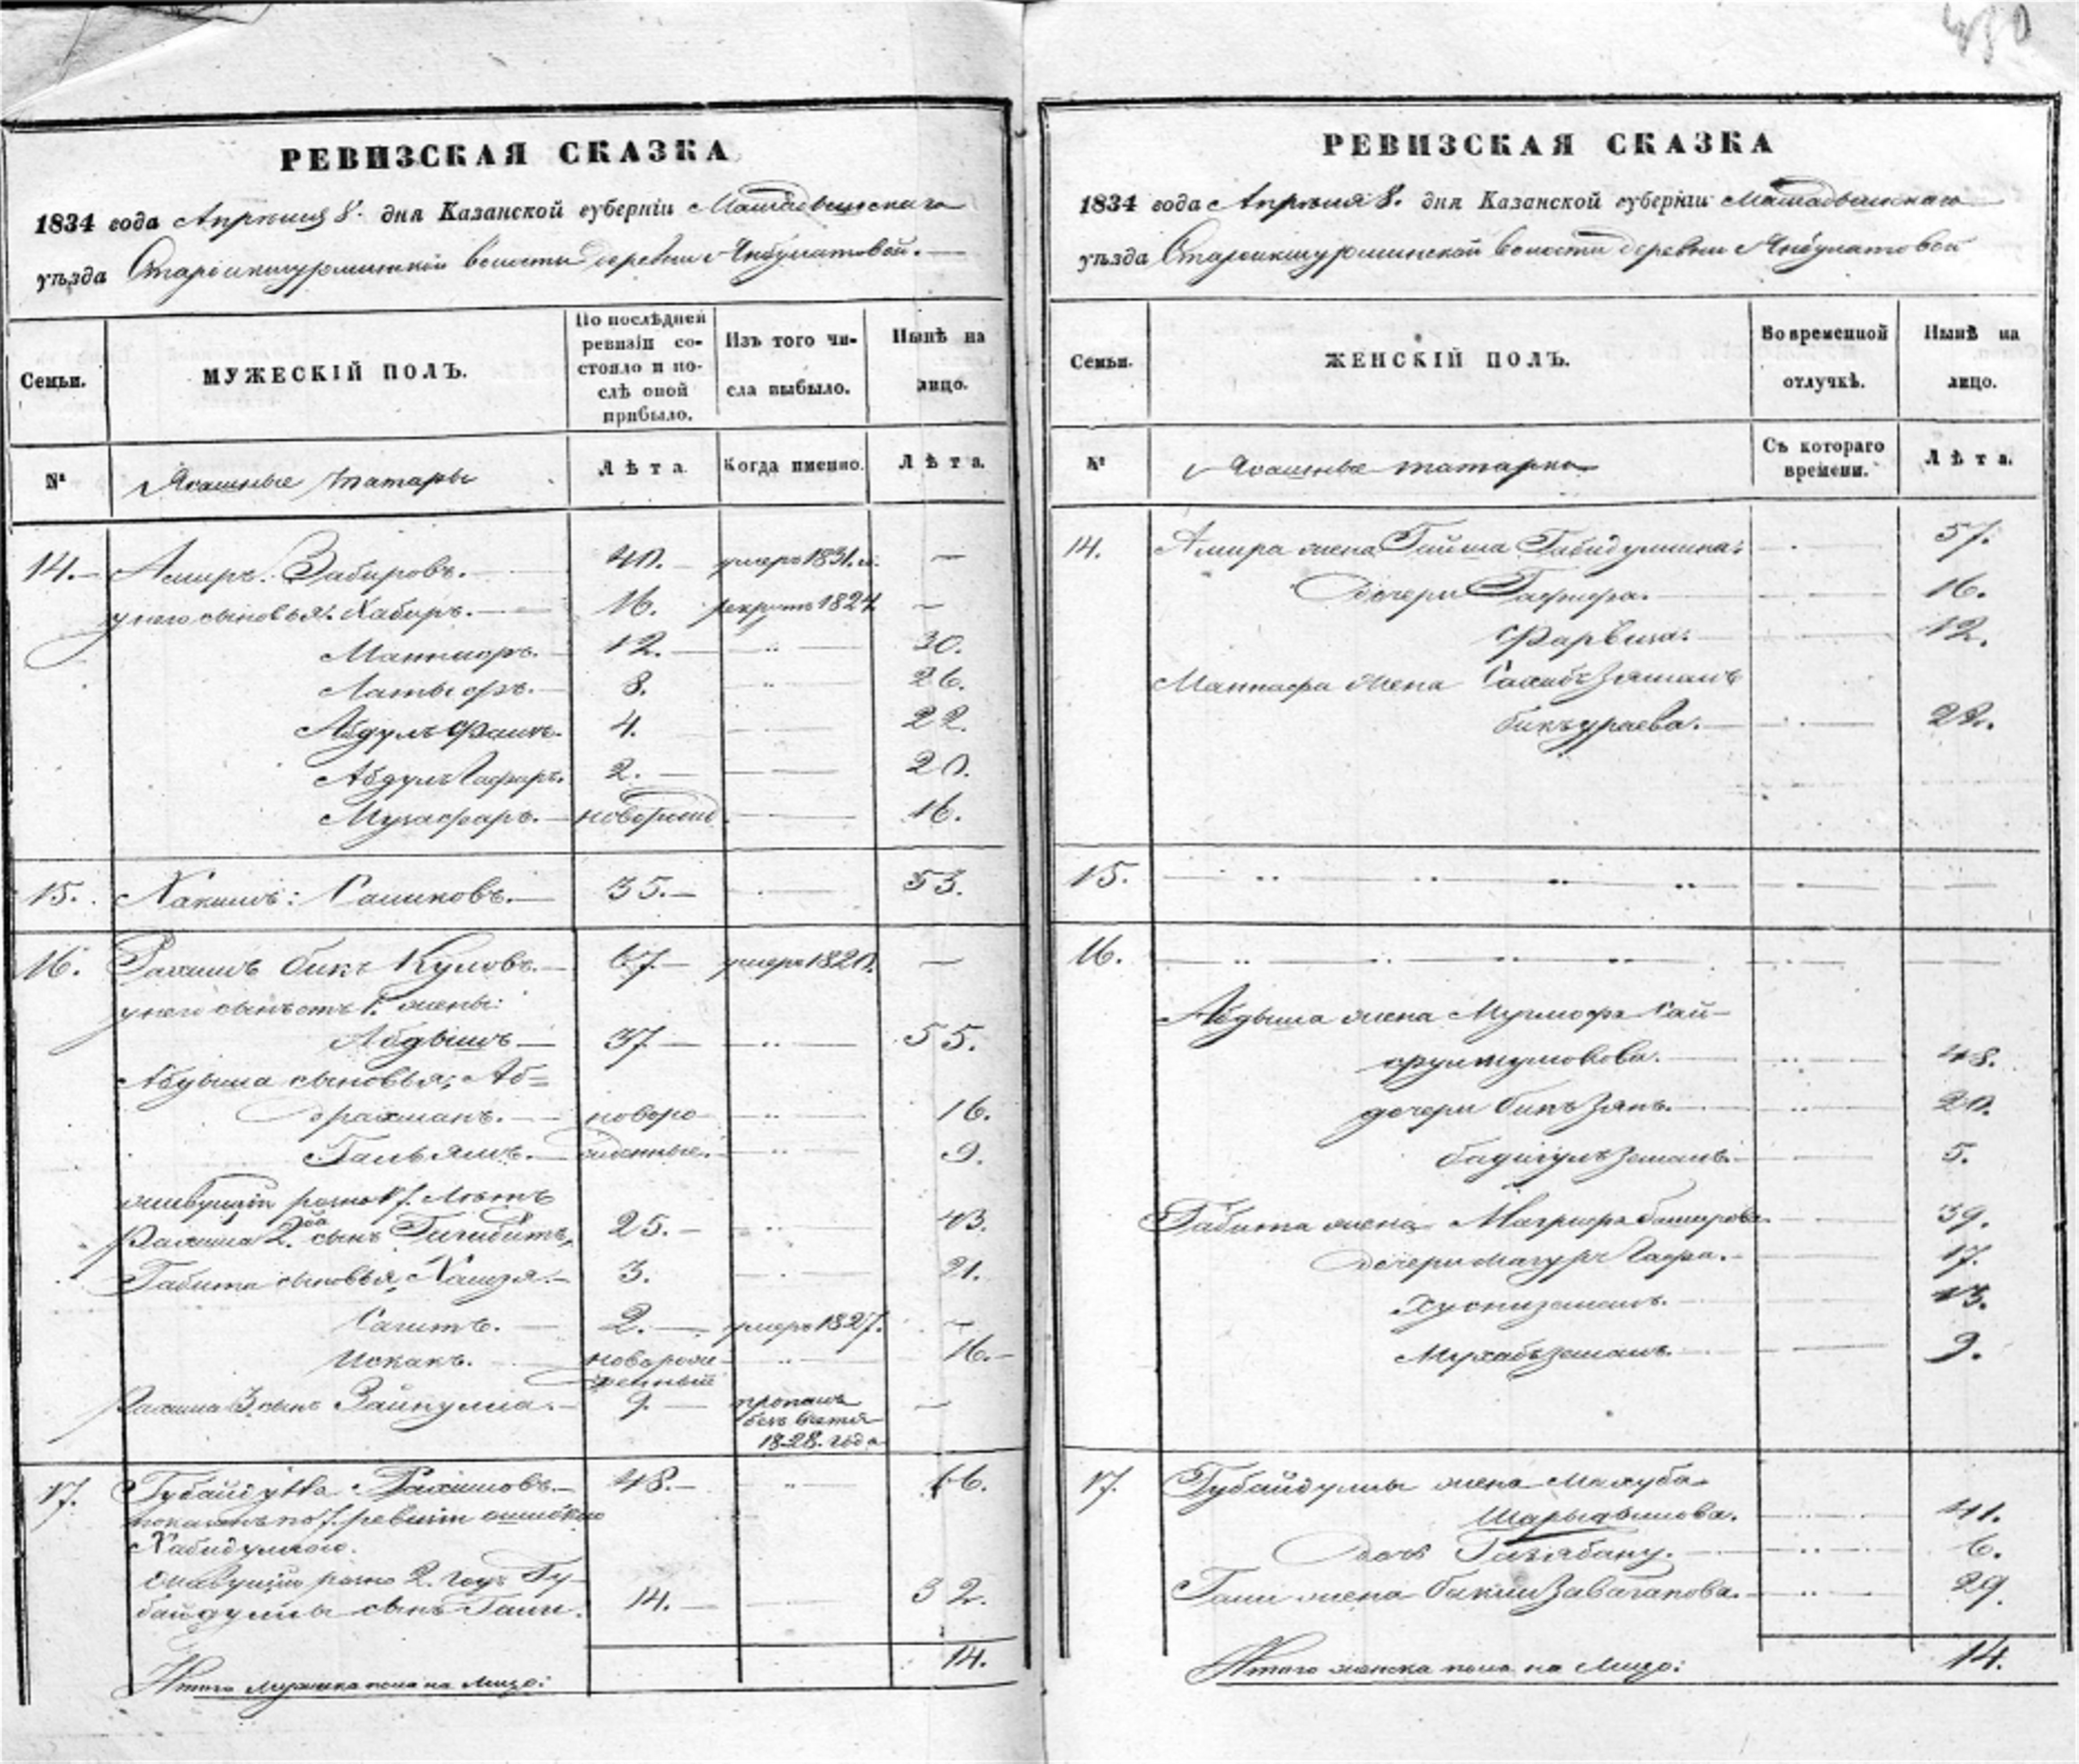 430
РЕВИЗСКАЯ СКАЗКА
1834 года Апреля 8. дня Казанской губерніи Мамадышскаго
уѣзда Староикшурминской волости деревни Янбулатовой.
Семьи.
МУЖЕСКІЙ ПОЛЪ.
По послѣдней ревизіи состояло и послѣ оной прибыло.
Изъ того числа выбыло.
Нынѣ на лицо.
№ Ясашные татары Лѣта Когда именно. Лѣта.
14. Амиръ Забировъ. 40. умеръ 1831. —
у него сыновья: Хабиръ. 16. рекрутъ 1824. —
12. 30.
Латыфъ. 8. 26.
Абдулъ 4. 22.
Абдулъ Гафаръ. 2. 20.
Музафаръ. новорожд 16.
15. 35. 53.
16. Рахимъ бикъ Куловъ. 67. умеръ 1820. —
у него сынъ отъ 1. жены:
Абдышъ 37 55.
Абдыша сыновья: Аб=
драхманъ. новоро 16.
жденные. 9.
живущій розно 7. лѣтъ
Рахима 2. сынъ 25. 43.
Габита сыновья, Хамзя. 3. 21.
Сагитъ. 2. умеръ 1827. —
Искакъ. новорож 16.
денный
Рахима 3. сынъ Зайнулла. 9. пропалъ
безъ вести
1828. года
17. Губайдулла Рахимовъ. 48. 66.
показанъ по 7. ревизіи ошибкою
Хабидуллою.
живущій розно 2. годъ Гу-
байдуллы сынъ Гани. 14. 32.
Итого мужеска пола на лицо: 14.
РЕВИЗСКАЯ СКАЗКА
1834 года Апреля 8. дня Казанской губерніи Мамадышскаго
уѣзда Староикшурминской волости деревни Янбулатовой
Семьи.
ЖЕНСКІЙ ПОЛЪ.
Во временной отлучкѣ.
Нынѣ на лицо.
№ Ясашные татарки Съ котораго времени. Лѣта.
14. Амира жена Гайша Габидуллина: 57.
дочери 16.
12.
жена Сахибъ Зямалъ
бикъураева. 22.
15.
16.
Абдыша жена Сай-
48.
дочери бикъ Зянъ. 20.
бадигулъ Земалъ. 5.
Габита жена Баширова. 39.
дочери 17.
Хуснизамалъ. 13.
9.
17. Губайдуллы жена Махуба
41.
дочь 6.
Гани жена 29.
Итого женска пола на лицо: 14.